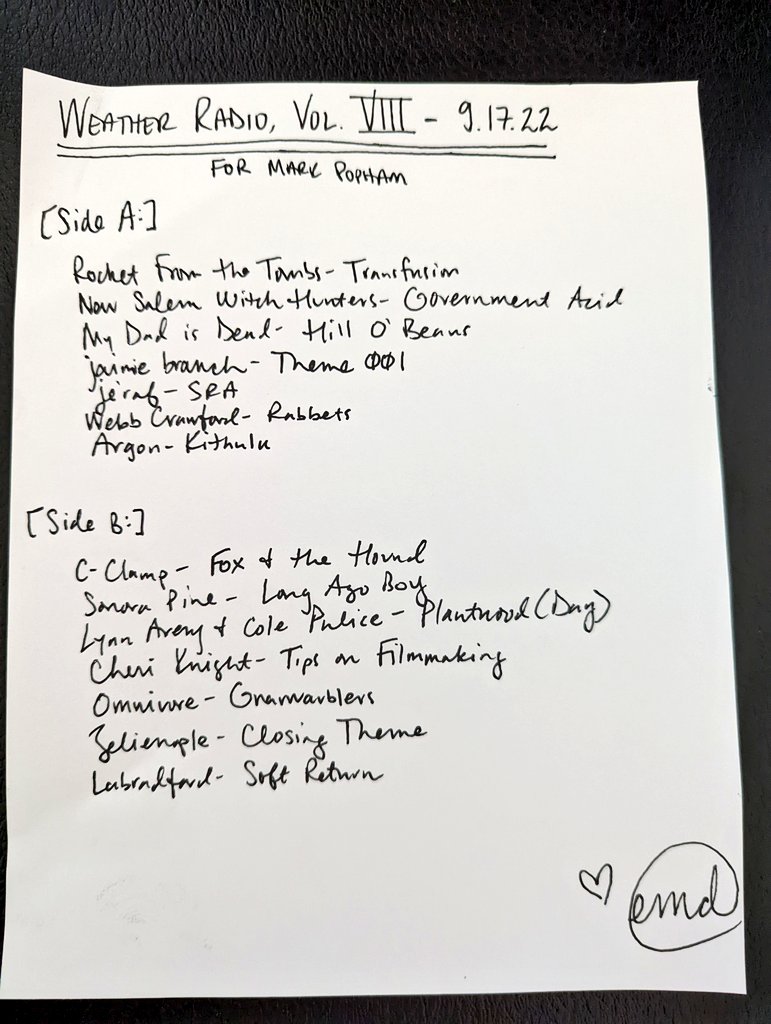 WEATHER RADIO, VOL. VIII - 9.17.22
FOR MARK POPHAM
[Side A:]
Rocket From the Tombs- Transfusion
New Salem Witch Hunters- Government Acid
My Dad is Dead- Hill O' Beans
jaimie branch- Theme 001
je'raf- SRA
Webb Crawford- Rabbets
Argon- Kithulu
[Side B:]
C-Clamp- Fox & the Hound
Sonora Pine- Long Ago Boy
Lynn Avery & Cole Pulice- Plantwood (Day)
Cheri Knight- Tips on Filmmaking
Omnivore- Gnarwarblers
Zelienople- Closing Theme
Labradford- Soft Return
♡ emd